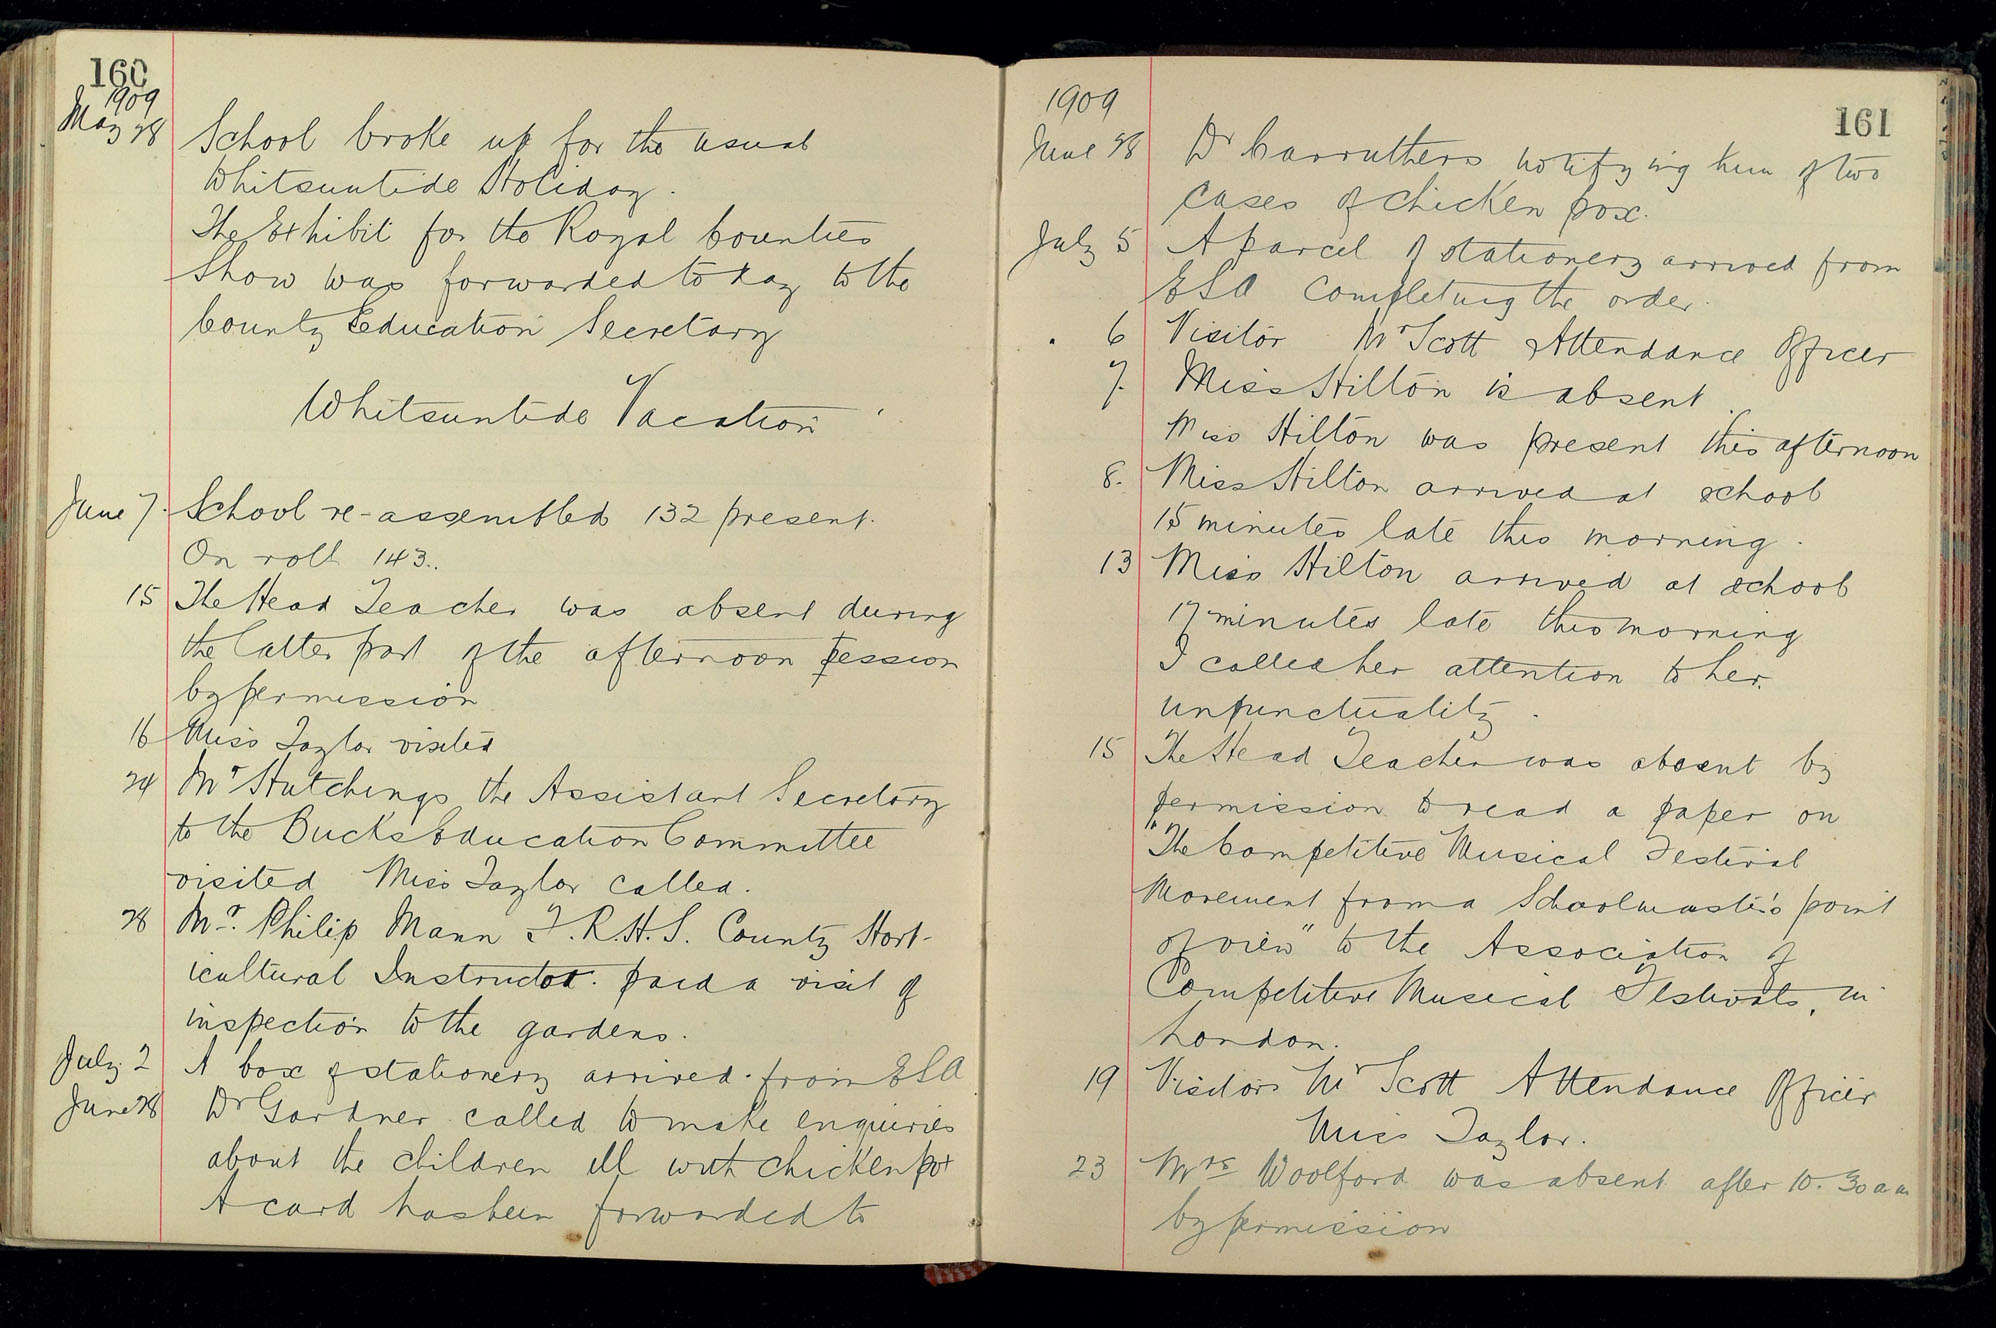 160
1909
May 28 School broke up for the usual
Whitsuntide Holiday.
The Exhibit for the Royal Counties
Show was forwarded to day to the
County Education Secretary
Whitsuntide Vacation
June 7. School re-assembled 132 present.
On roll 143.
15 The Head Teacher was absent during
the latter part of the afternoon session
by permission
16 Miss Taylor visited
24 Mr Hutchings the Assistant Secretary
to the Bucks Education Committee
visited Miss Taylor called.
28 Mr. Philip Mann F.R.H.S. County Hort-
icultural Instructor. paid a visit of
inspection to the gardens.
July 2 A box of stationery arrived from ESA
June 28 Dr Gardner called to make enquiries
about the children ill with chicken pox
A card has been forwarded to
161
1909
June 28 Dr Carruthers notifying him of two
cases of chicken pox.
July 5 A parcel of stationery arrived from
ESA completing the order.
6 Visitor Mr Scott Attendance Officer
7. Miss Hilton is absent.
Miss Hilton was present this afternoon
8. Miss Hilton arrived at school
15 minutes late this morning.
13 Miss Hilton arrived at school
17 minutes late this morning
I called her attention to her
unpunctuality.
15 The Head Teacher was absent by
permission to read a paper on
"The Competitive Musical Festival
Movement from a Schoolmaster's point
of view" to the Association of
Competitive Musical Festivals, in
London.
19 Visitors Mr Scott Attendance Officer
Miss Taylor.
23 Mrs Woolford was absent after 10.30 am
by permission